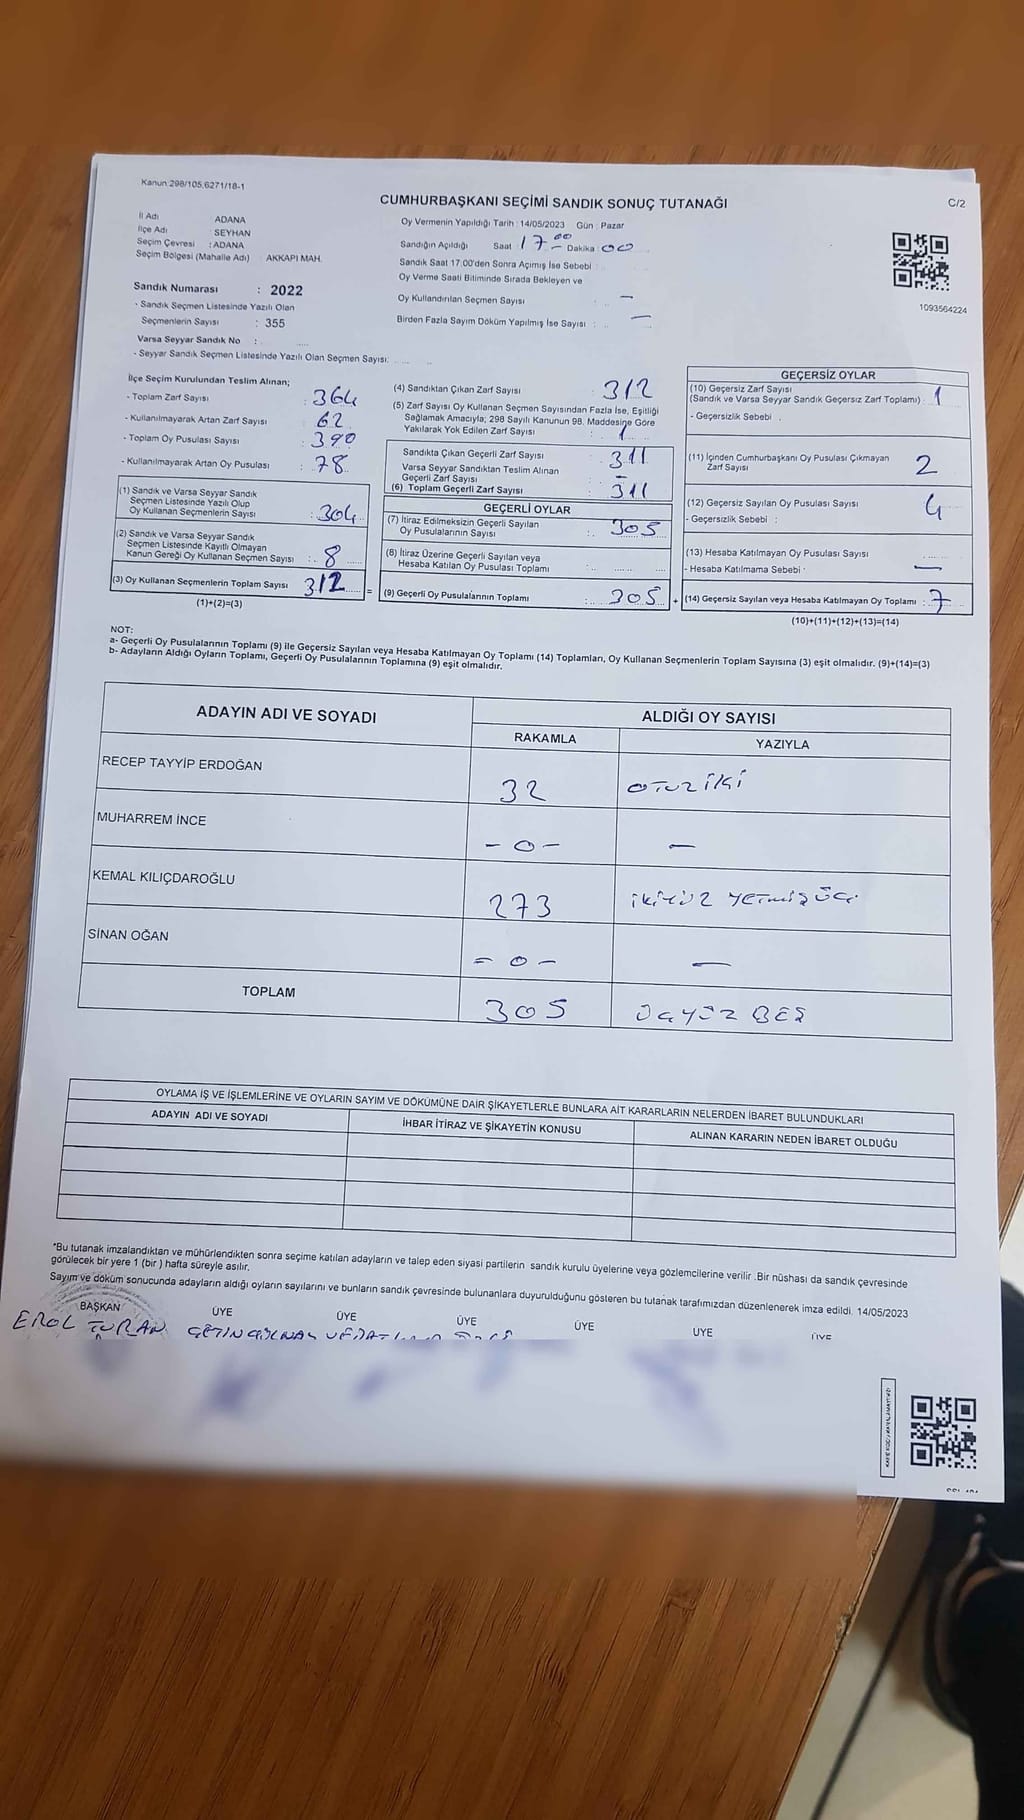 Kanun:298/105,6271/18-1
CUMHURBAŞKANI SEÇİMİ SANDIK SONUÇ TUTANAĞI
C/2
İl Adı ADANA
İlçe Adı SEYHAN
Seçim Çevresi : ADANA
Seçim Bölgesi (Mahalle Adı) AKKAPI MAH.
Oy Vermenin Yapıldığı Tarih : 14/05/2023 Gün : Pazar
Sandığın Açıldığı Saat 17.00 Dakika : 00
Sandık Saat 17:00'den Sonra Açımış İse Sebebi :
Oy Verme Saati Bitiminde Sırada Bekleyen ve
Oy Kullandırılan Seçmen Sayısı : —
Birden Fazla Sayım Döküm Yapılmış İse Sayısı : —
1093564224
Sandık Numarası : 2022
- Sandık Seçmen Listesinde Yazılı Olan
Seçmenlerin Sayısı : 355
Varsa Seyyar Sandık No :
- Seyyar Sandık Seçmen Listesinde Yazılı Olan Seçmen Sayısı:
İlçe Seçim Kurulundan Teslim Alınan;
- Toplam Zarf Sayısı : 364
- Kullanılmayarak Artan Zarf Sayısı : 62
- Toplam Oy Pusulası Sayısı : 390
- Kullanılmayarak Artan Oy Pusulası : 78
(1) Sandık ve Varsa Seyyar Sandık
Seçmen Listesinde Yazılı Olup
Oy Kullanan Seçmenlerin Sayısı : 304
(2) Sandık ve Varsa Seyyar Sandık
Seçmen Listesinde Kayıtlı Olmayan
Kanun Gereği Oy Kullanan Seçmen Sayısı : 8
(3) Oy Kullanan Seçmenlerin Toplam Sayısı 312 =
(1)+(2)=(3)
(4) Sandıktan Çıkan Zarf Sayısı : 312
(5) Zarf Sayısı Oy Kullanan Seçmen Sayısından Fazla İse, Eşitliği
Sağlamak Amacıyla; 298 Sayılı Kanunun 98. Maddesine Göre
Yakılarak Yok Edilen Zarf Sayısı : 1
Sandıkta Çıkan Geçerli Zarf Sayısı : 311
Varsa Seyyar Sandıktan Teslim Alınan
Geçerli Zarf Sayısı : —
(6) Toplam Geçerli Zarf Sayısı : 311
GEÇERLİ OYLAR
(7) İtiraz Edilmeksizin Geçerli Sayılan
Oy Pusulalarının Sayısı : 305
(8) İtiraz Üzerine Geçerli Sayılan veya
Hesaba Katılan Oy Pusulası Toplamı :
(9) Geçerli Oy Pusulalarının Toplamı : 305 +
GEÇERSİZ OYLAR
(10) Geçersiz Zarf Sayısı
(Sandık ve Varsa Seyyar Sandık Geçersiz Zarf Toplamı) : 1
- Geçersizlik Sebebi
(11) İçinden Cumhurbaşkanı Oy Pusulası Çıkmayan
Zarf Sayısı 2
(12) Geçersiz Sayılan Oy Pusulası Sayısı 4
- Geçersizlik Sebebi :
(13) Hesaba Katılmayan Oy Pusulası Sayısı
- Hesaba Katılmama Sebebi : —
(14) Geçersiz Sayılan veya Hesaba Katılmayan Oy Toplamı : 7
(10)+(11)+(12)+(13)=(14)
NOT:
a- Geçerli Oy Pusulalarının Toplamı (9) ile Geçersiz Sayılan veya Hesaba Katılmayan Oy Toplamı (14) Toplamları, Oy Kullanan Seçmenlerin Toplam Sayısına (3) eşit olmalıdır. (9)+(14)=(3)
b- Adayların Aldığı Oyların Toplamı, Geçerli Oy Pusulalarının Toplamına (9) eşit olmalıdır.
ADAYIN ADI VE SOYADI ALDIĞI OY SAYISI
RAKAMLA YAZIYLA
RECEP TAYYİP ERDOĞAN 32 OTUZİKİ
MUHARREM İNCE -0- —
KEMAL KILIÇDAROĞLU 273 İKİYÜZ YETMİŞÜÇ
SİNAN OĞAN -0- —
TOPLAM 305 ÜÇYÜZ BEŞ
OYLAMA İŞ VE İŞLEMLERİNE VE OYLARIN SAYIM VE DÖKÜMÜNE DAİR ŞİKAYETLERLE BUNLARA AİT KARARLARIN NELERDEN İBARET BULUNDUKLARI
ADAYIN ADI VE SOYADI İHBAR İTİRAZ VE ŞİKAYETİN KONUSU ALINAN KARARIN NEDEN İBARET OLDUĞU
*Bu tutanak imzalandıktan ve mühürlendikten sonra seçime katılan adayların ve talep eden siyasi partilerin sandık kurulu üyelerine veya gözlemcilerine verilir .Bir nüshası da sandık çevresinde
görülecek bir yere 1 (bir ) hafta süreyle asılır.
Sayım ve döküm sonucunda adayların aldığı oyların sayılarını ve bunların sandık çevresinde bulunanlara duyurulduğunu gösteren bu tutanak tarafımızdan düzenlenerek imza edildi. 14/05/2023
BAŞKAN ÜYE ÜYE ÜYE ÜYE ÜYE ÜYE
EROL TURAN ÇETİN